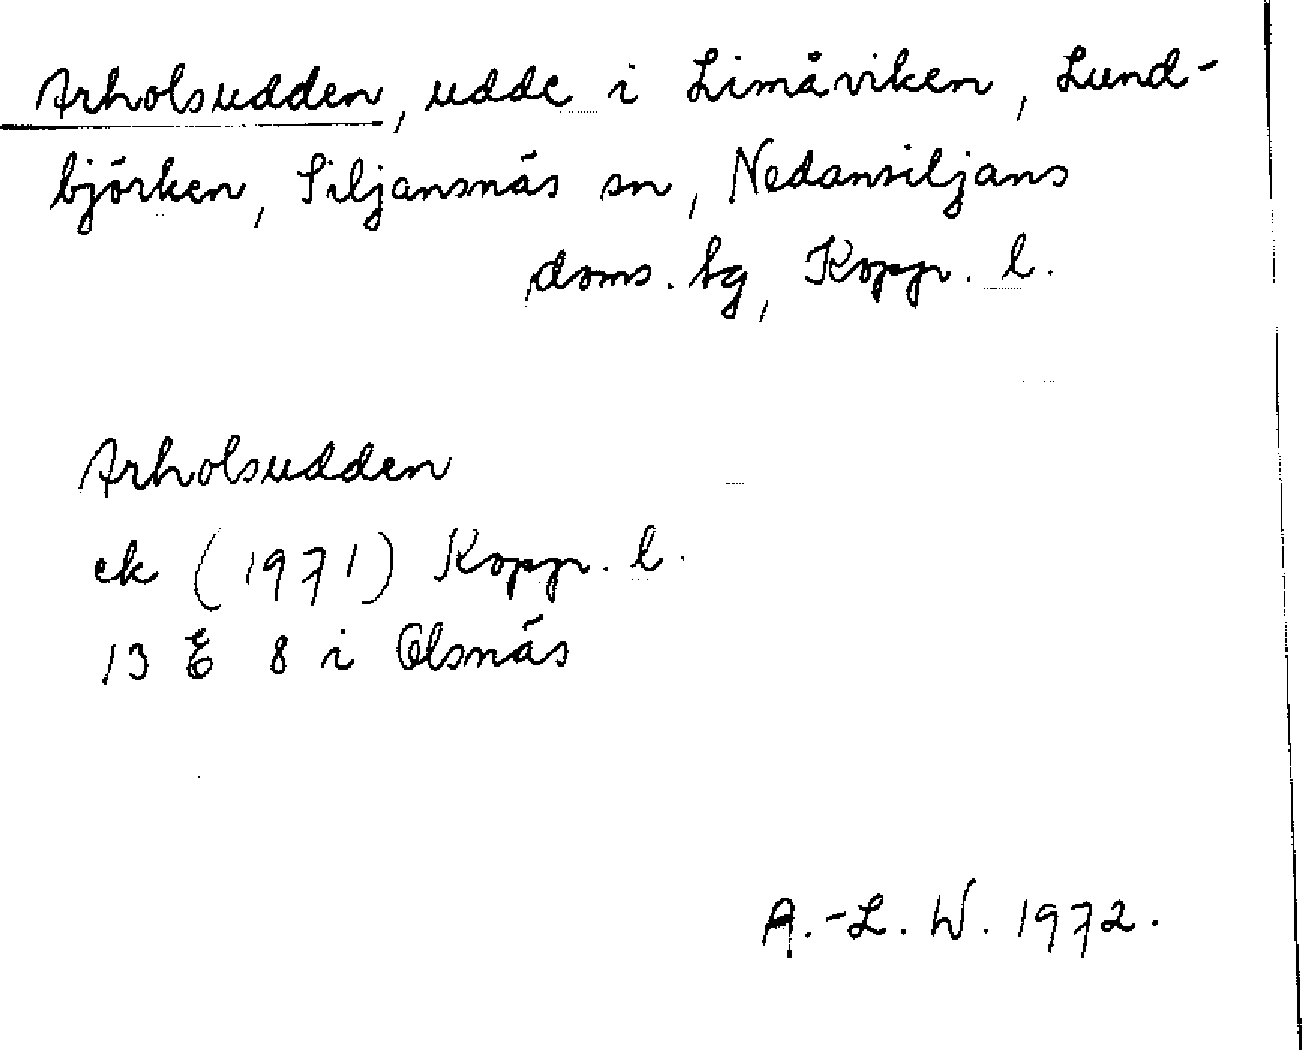 Arholsudden, udde i Limåviken, Lund-
björken, Siljansnäs sn, Nedansiljans
doms. tg, Kopp. l.
Arholsudden
ek (1971) Kopp. l.
13 E 8 i Olsnäs
A.-L. W. 1972.